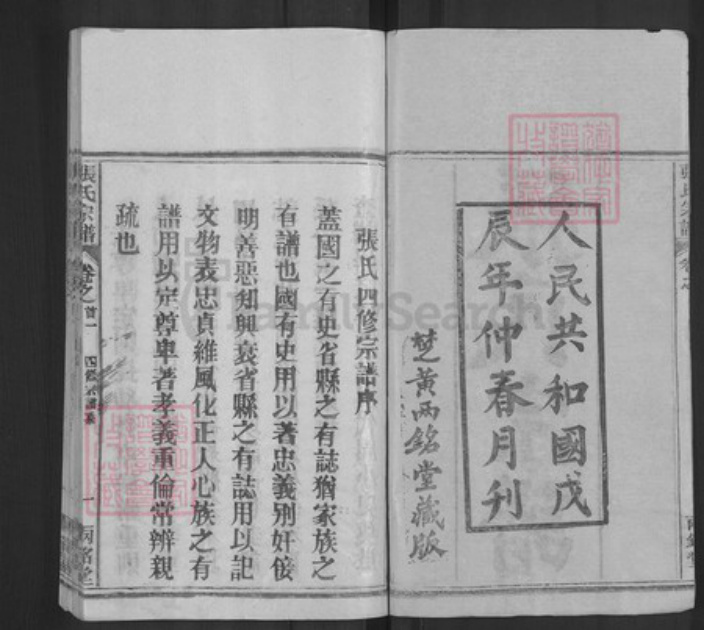 人民共和國戊
辰年仲春月刊
楚黃兩銘堂藏版
張氏四修宗譜序
蓋國之有史省縣之有誌猶家族之
有譜也國有史用以著忠義别奸佞
明善惡知興衰省縣之有誌用以記
文物表忠貞維風化正人心族之有
譜用以定尊卑著孝義重倫常辨親
疏也
張氏宗譜
卷之首一
一
兩銘堂
FamilySearch